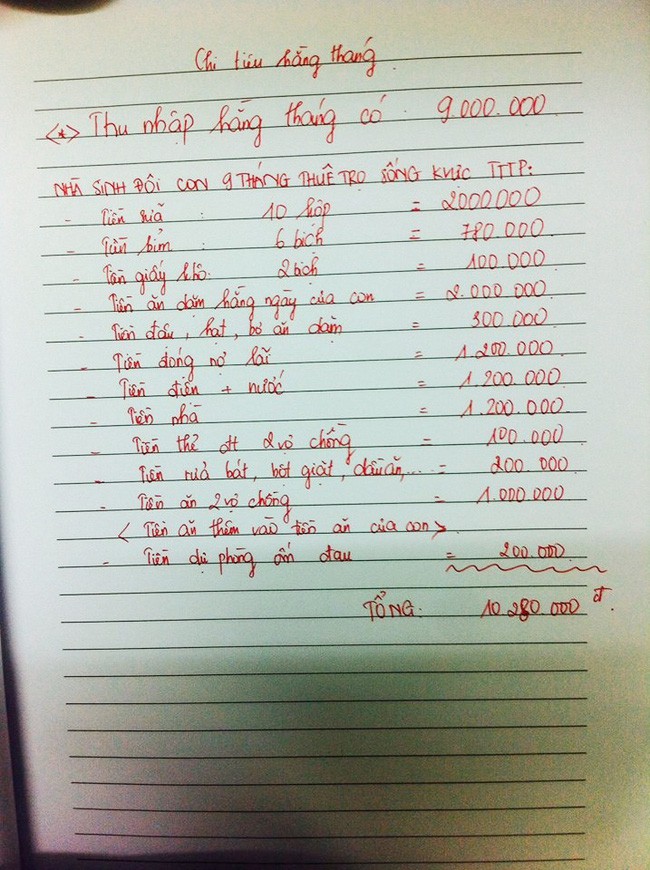 Chi tiêu hằng tháng
<*> Thu nhập hằng tháng có : 9.000.000
NHÀ SINH ĐÔI CON 9 THÁNG THUÊ TRỌ SỐNG KHU VỰC TTTP:
- Tiền sữa : 10 hộp = 2000000
- Tiền bỉm : 6 bịch = 780.000
- Tiền giấy khô: 2 bịch = 100.000
- Tiền ăn dặm hằng ngày của con = 2.000.000
- Tiền dầu, hạt, bơ ăn dặm = 300.000
- Tiền đóng nợ lãi = 1.200.000
- Tiền điện + nước = 1.200.000
- Tiền nhà = 1.200.000
- Tiền thẻ đt 2 vợ chồng = 100.000
- Tiền rửa bát, bột giặt, dầu ăn,... = 200.000
- Tiền ăn 2 vợ chồng = 1.000.000
< Tiền ăn thêm vào tiền ăn của con >
- Tiền dự phòng ốm đau = 200.000
TỔNG: 10.280.000 đ